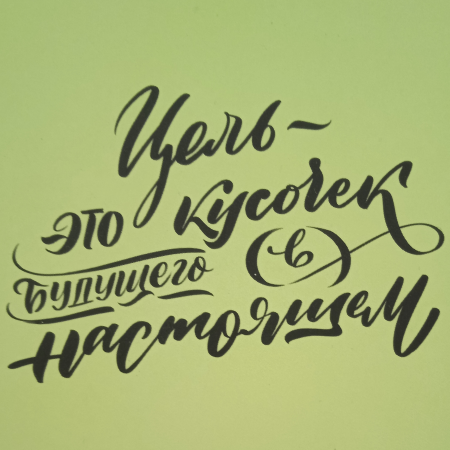 Цель –
это кусочек
будущего в
настоящем